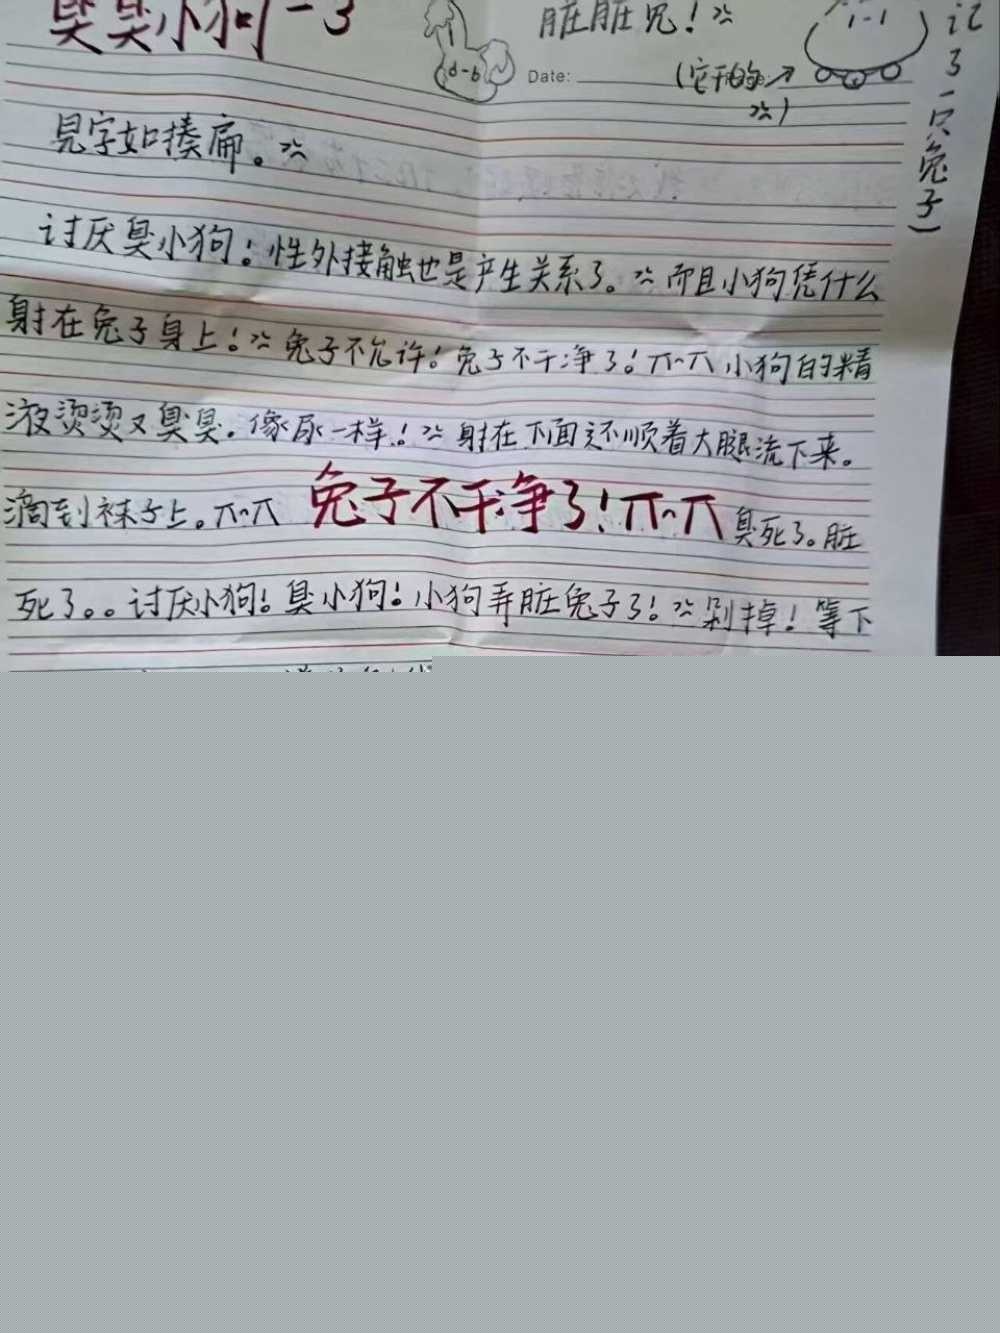 臭臭小狗
脏脏兔！
d-b
Date:
(它干的
)
记了一只兔子)
见字如揍扁。
讨厌臭小狗！性外接触也是产生关系了。而且小狗凭什么
射在兔子身上！兔子不允许！兔子不干净了！π~π 小狗的精
液烫烫又臭臭。像尿一样！射在下面还顺着大腿流下来。
滴到袜子上。π~π 兔子不干净了！π~π 臭死了。脏
死了。。讨厌小狗！臭小狗！小狗弄脏兔子了！剁掉！等下